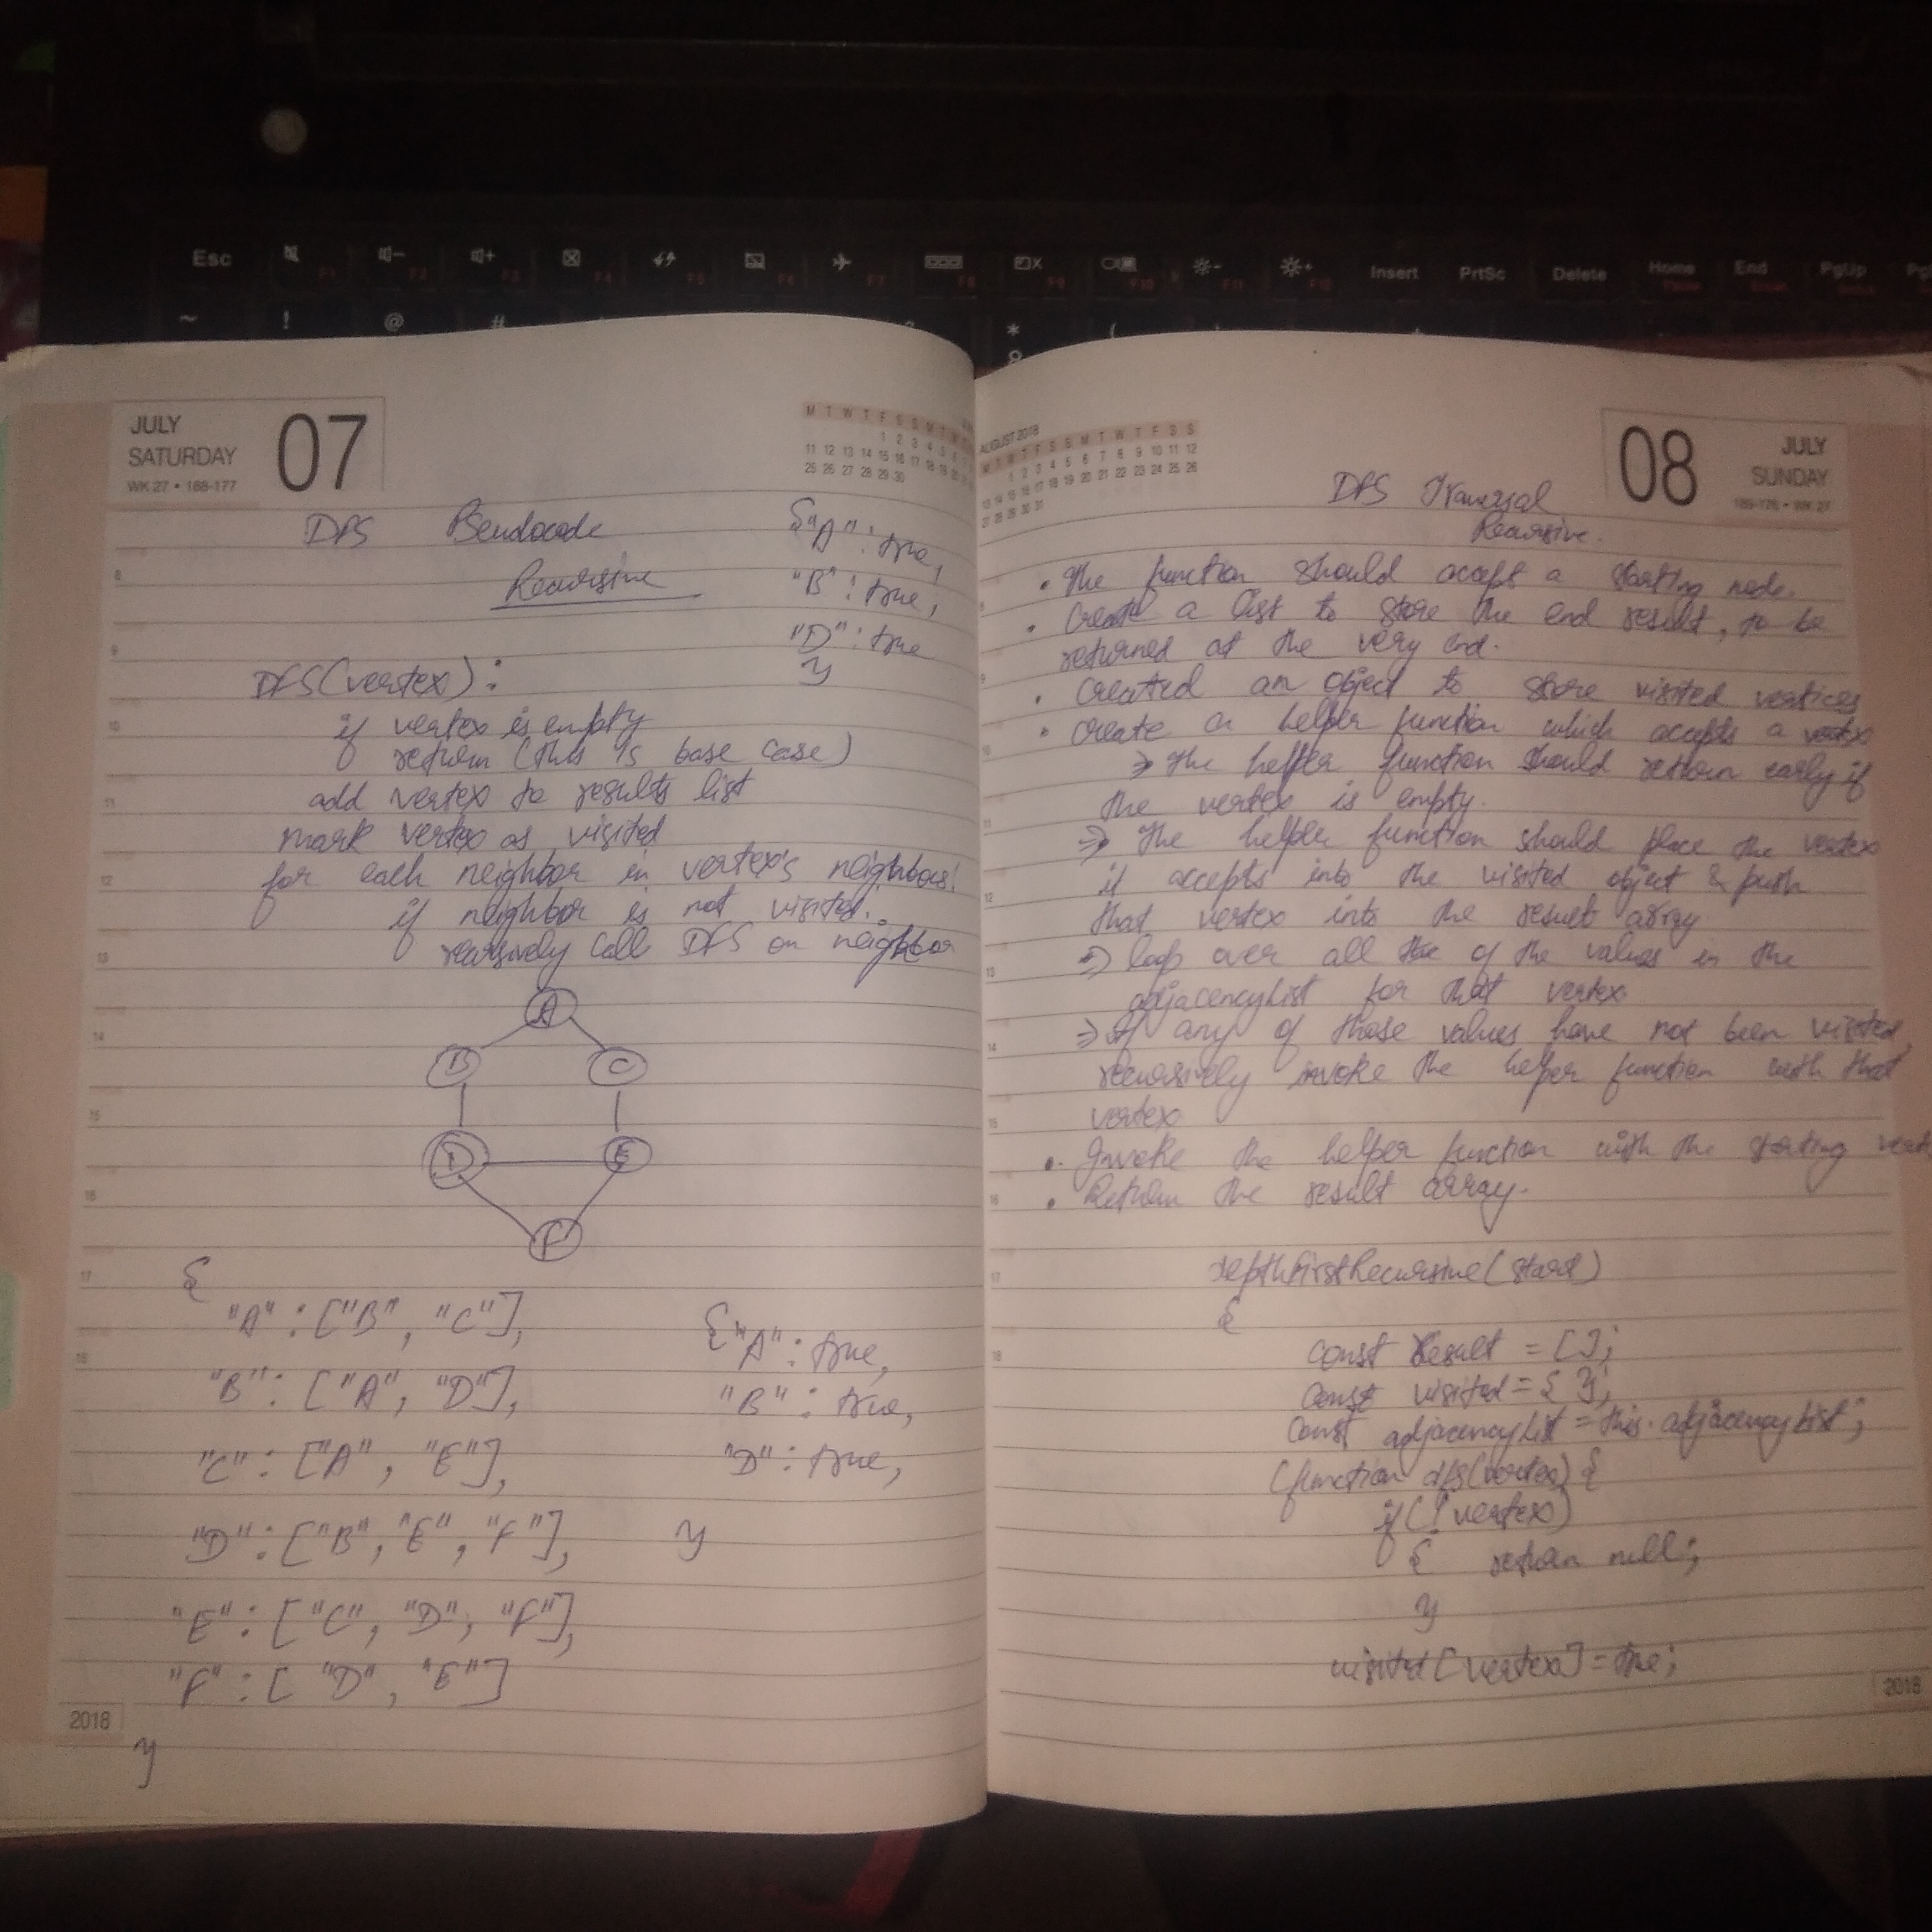 Esc F1 F2 F3 F4 F5 F6 F7 F8 F9 F10 F11 F12 Insert PrtSc Delete Home End PgUp
~ ! @ # * (
8
JULY
SATURDAY
WK 27 • 188-177
07
M T W T F S S M T W
1 2 3 4 5
11 12 13 14 15 16 17 18 19 20
25 26 27 28 29 30
DFS Pseudocode
Recursive
{"A" : true,
"B" : true,
"D" : true
}
DFS(vertex):
if vertex is empty
return (this is base case)
add vertex to results list
mark vertex as visited
for each neighbor in vertex's neighbors:
if neighbor is not visited:
recursively call DFS on neighbor
A
B C
D E
F
{
"A" : ["B", "C"],
"B" : ["A", "D"],
"C" : ["A", "E"],
"D" : ["B", "E", "F"],
"E" : ["C", "D", "F"],
"F" : ["D", "E"]
}
{"A" : true,
"B" : true,
"D" : true,
}
8
9
10
11
12
13
14
15
16
17
18
2018
AUGUST 2018
M T W T F S S M T W T F S S
1 2 3 4 5 6 7 8 9 10 11 12
13 14 15 16 17 18 19 20 21 22 23 24 25 26
27 28 29 30 31
08
JULY
SUNDAY
189-176 • WK 27
DFS Traversal
Recursive.
• The function should accept a starting node.
• Create a list to store the end result, to be
returned at the very end.
• Created an object to store visited vertices
• Create a helper function which accepts a vertex
⇒ The helper function should return early if
the vertex is empty.
⇒ The helper function should place the vertex
it accepts into the visited object & push
that vertex into the result array
⇒ loop over all the of the values in the
adjacencyList for that vertex
⇒ If any of those values have not been visited,
recursively invoke the helper function with that
vertex
• Invoke the helper function with the starting
• Return the result array.
depthFirstRecursive(start)
{
const result = [];
const visited = { };
const adjacencyList = this.adjacencyList;
(function dfs(vertex) {
if(!vertex)
{ return null;
}
visited[vertex] = true;
9
10
11
12
13
14
15
16
17
18
2018